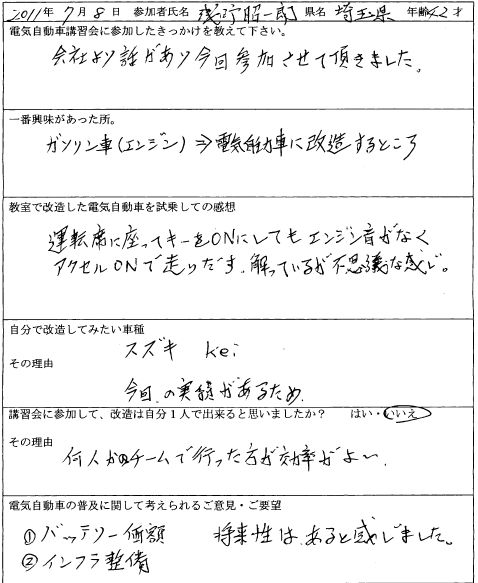 2011年 7月 8日 参加者氏名 浅野昭一郎 県名 埼玉県 年齢42才
電気自動車講習会に参加したきっかけを教えて下さい。
会社より話があり今回参加させて頂きました。
一番興味があった所。
ガソリン車(エンジン)⇒電気自動車に改造するところ
教室で改造した電気自動車を試乗しての感想
運転席に座ってキーをONにしてもエンジン音がなく
アクセルONで走りだす。解っているが不思議な感じ。
自分で改造してみたい車種
スズキ kei
その理由
今回の実績があるため
講習会に参加して、改造は自分1人で出来ると思いましたか? はい・いいえ
その理由
何人かのチームで行った方が効率がよい
電気自動車の普及に関して考えられるご意見・ご要望
①バッテリー価額 将来性は、あると感じました。
②インフラ整備